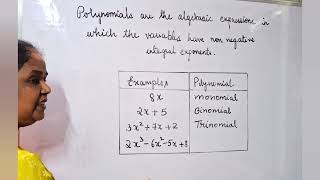 Polynomials are the algebraic expressions in
which the variables have non negative
integral exponents.
Examples Polynomial
8x monomial
2x + 5 Binomial
3x² + 7x + 2 Trinomial
2x³ - 6x² - 5x + 8